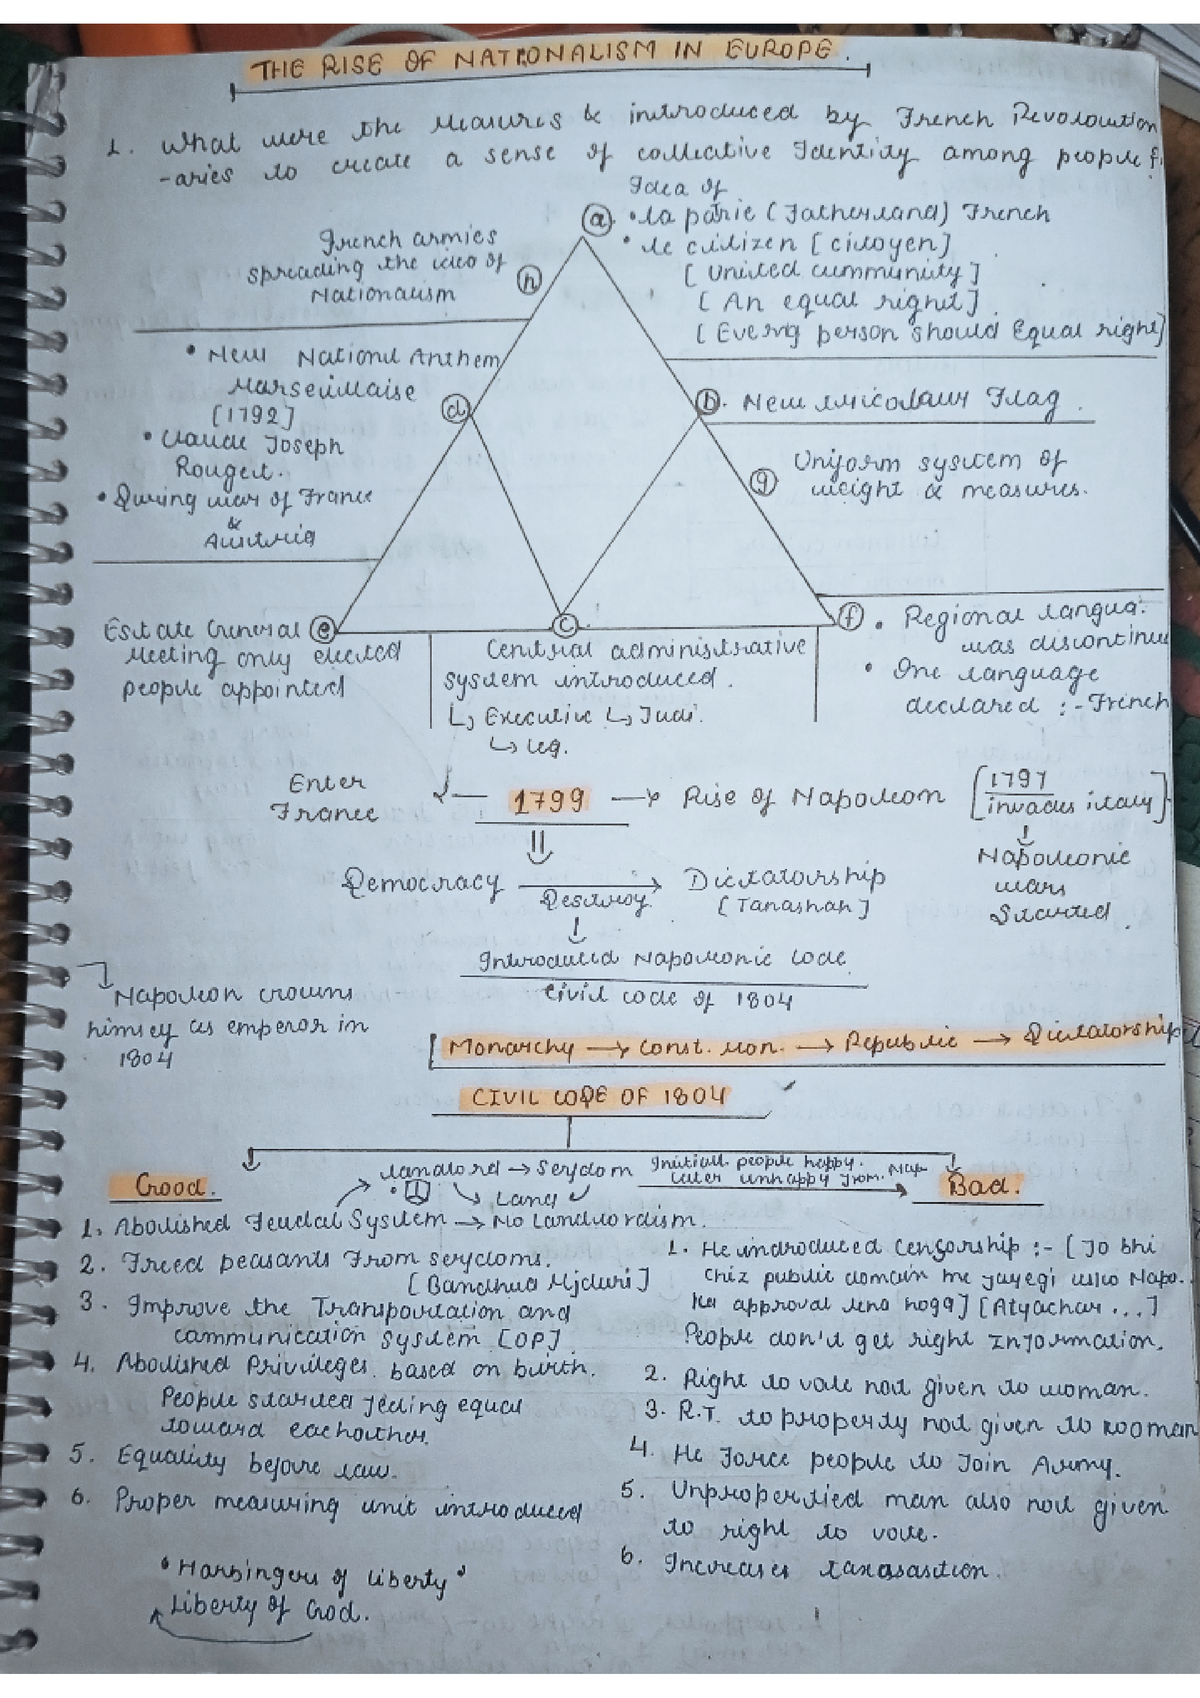 THE RISE OF NATIONALISM IN EUROPE.
1. What were the measures & introduced by French Revoloution
-aries to create a sense of collective Identity among people
Idea of
(a) • La patrie (Fatherland) French
• Le citizen [citoyen]
[United cummunity]
[An equal right]
[Every person should Equal right]
(h) French armies
spreading the idea of
Nationalism
• New National Anthem
Marseillaise
[1792]
• Claude Joseph
Rouget.
• During war of France
&
Austria
(d)
(b). New tricolour Flag.
(g) Uniform system of
weight & measures.
Estate General (e)
Meeting only elected
people appointed
(c)
Central administrative
system introduced.
↳ Executive ↳ Judi.
↳ leg.
(f) • Regional langua.
was discontinue
• One language
declared :- French
Enter
France
1799 → Rise of Napoleon [1797
invades italy]
Napoleonic
wars
Started.
Democracy → Dictatorship
Destroy. [Tanashah]
Introduced Napoleonic code
Civil code of 1804
Napoleon crowns
himself as emperor in
1804
[Monarchy → Const. Mon. → Republic → Dictatorship
CIVIL CODE OF 1804
Landlord → Serfdom
Land
Initiall. people happy.
Later unhappy from. Nap
Good.
Bad.
1. Abolished Feudal System → No Landlordism.
2. Freed peasants From serfdoms.
[Bandhua Mjduri]
3. Improve the Transportation and
cammunication system [OP]
4. Abolished Privileges. based on birth.
People started feeling equal
toward eachother.
5. Equality before law.
6. Proper measuring unit introduced
• Harbingers of liberty •
Liberty of God.
1. He introduced Censorship :- [Jo bhi
chiz public domain me jayegi usko Napo.
ka approval lena hoga] [Atyachar ...]
People don't get right Information.
2. Right to vote not given to woman.
3. R.T. to property not given to wooman
4. He Force people to Join Army.
5. Unpropertied man also not given
to right to vote.
6. Increases taxasastion.